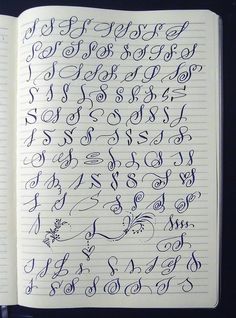 S S S S S S S
S S S S S S S S
S S S S S S S
S S S S S S S S S
S S S S S S S S
S S S S S S S S
S S S S S S S S
S S S S S S S S
S S S S S S S
S S ssss
S
S S S S S S S S
S S S S S S S